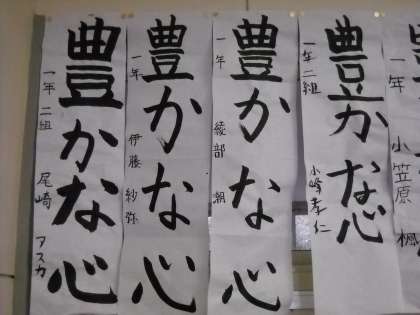 豊かな心
一年 二組 尾崎 アスカ
豊かな心
一年 伊藤 紗弥
豊かな心
一年 綾部
豊かな心
一年二組 小峰孝仁
一年 小笠原 楓